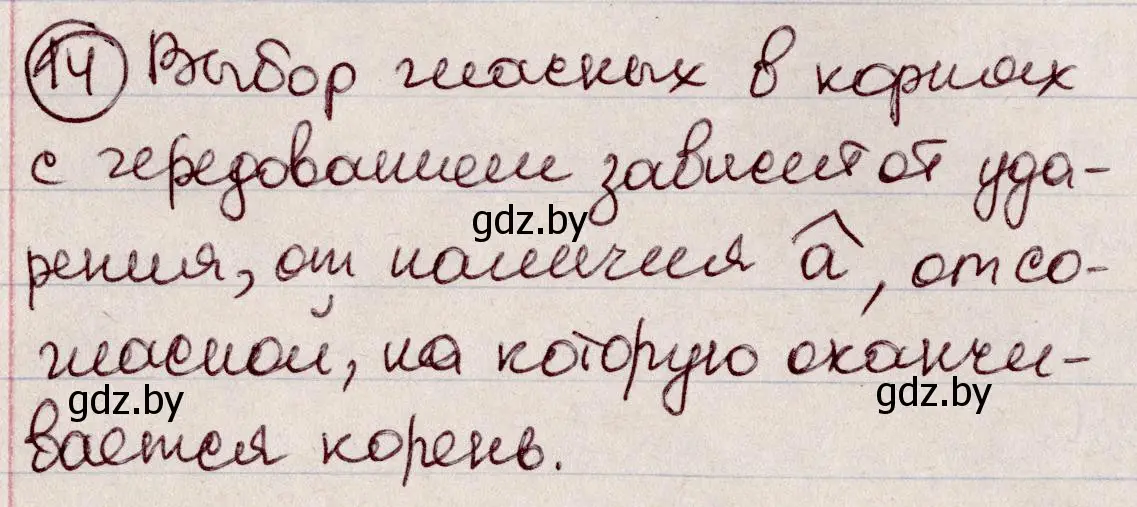 14 Выбор гласных в корнях
с чередованием зависит от уда-
рения, от наличия а, от со-
гласной, на которую оканчи-
вается корень.
gdz.by
gdz.by
gdz.by